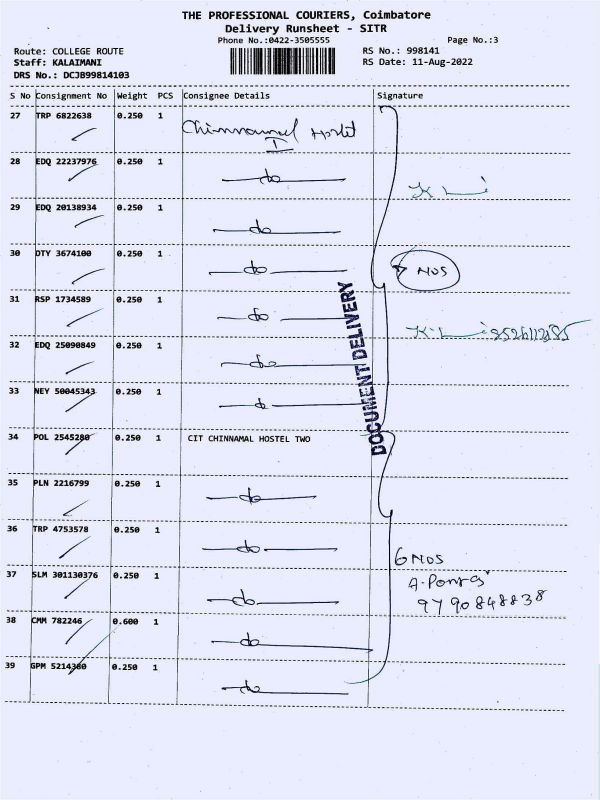 THE PROFESSIONAL COURIERS, Coimbatore
Delivery Runsheet - SITR
Phone No.:0422-3505555
Page No.:3
Route: COLLEGE ROUTE
RS No.: 998141
Staff: KALAIMANI
RS Date: 11-Aug-2022
DRS No.: DCJB99814103
S No Consignment No Weight PCS Consignee Details Signature
27 TRP 6822638 0.250 1 Chinnammal Hostel
I
28 EDQ 22237976 0.250 1 do
29 EDQ 20138934 0.250 1 do
30 DTY 3674100 0.250 1 do
7 NOS
31 RSP 1734589 0.250 1 do
32 EDQ 25090849 0.250 1 do
33 NEY 50045343 0.250 1 do
DOCUMENT DELIVERY
34 POL 2545280 0.250 1 CIT CHINNAMAL HOSTEL TWO
35 PLN 2216799 0.250 1 do
36 TRP 4753578 0.250 1 do
6 NOS
37 SLM 301130376 0.250 1 do
9790848838
38 CMM 782246 0.600 1 do
39 GPM 5214380 0.250 1 do